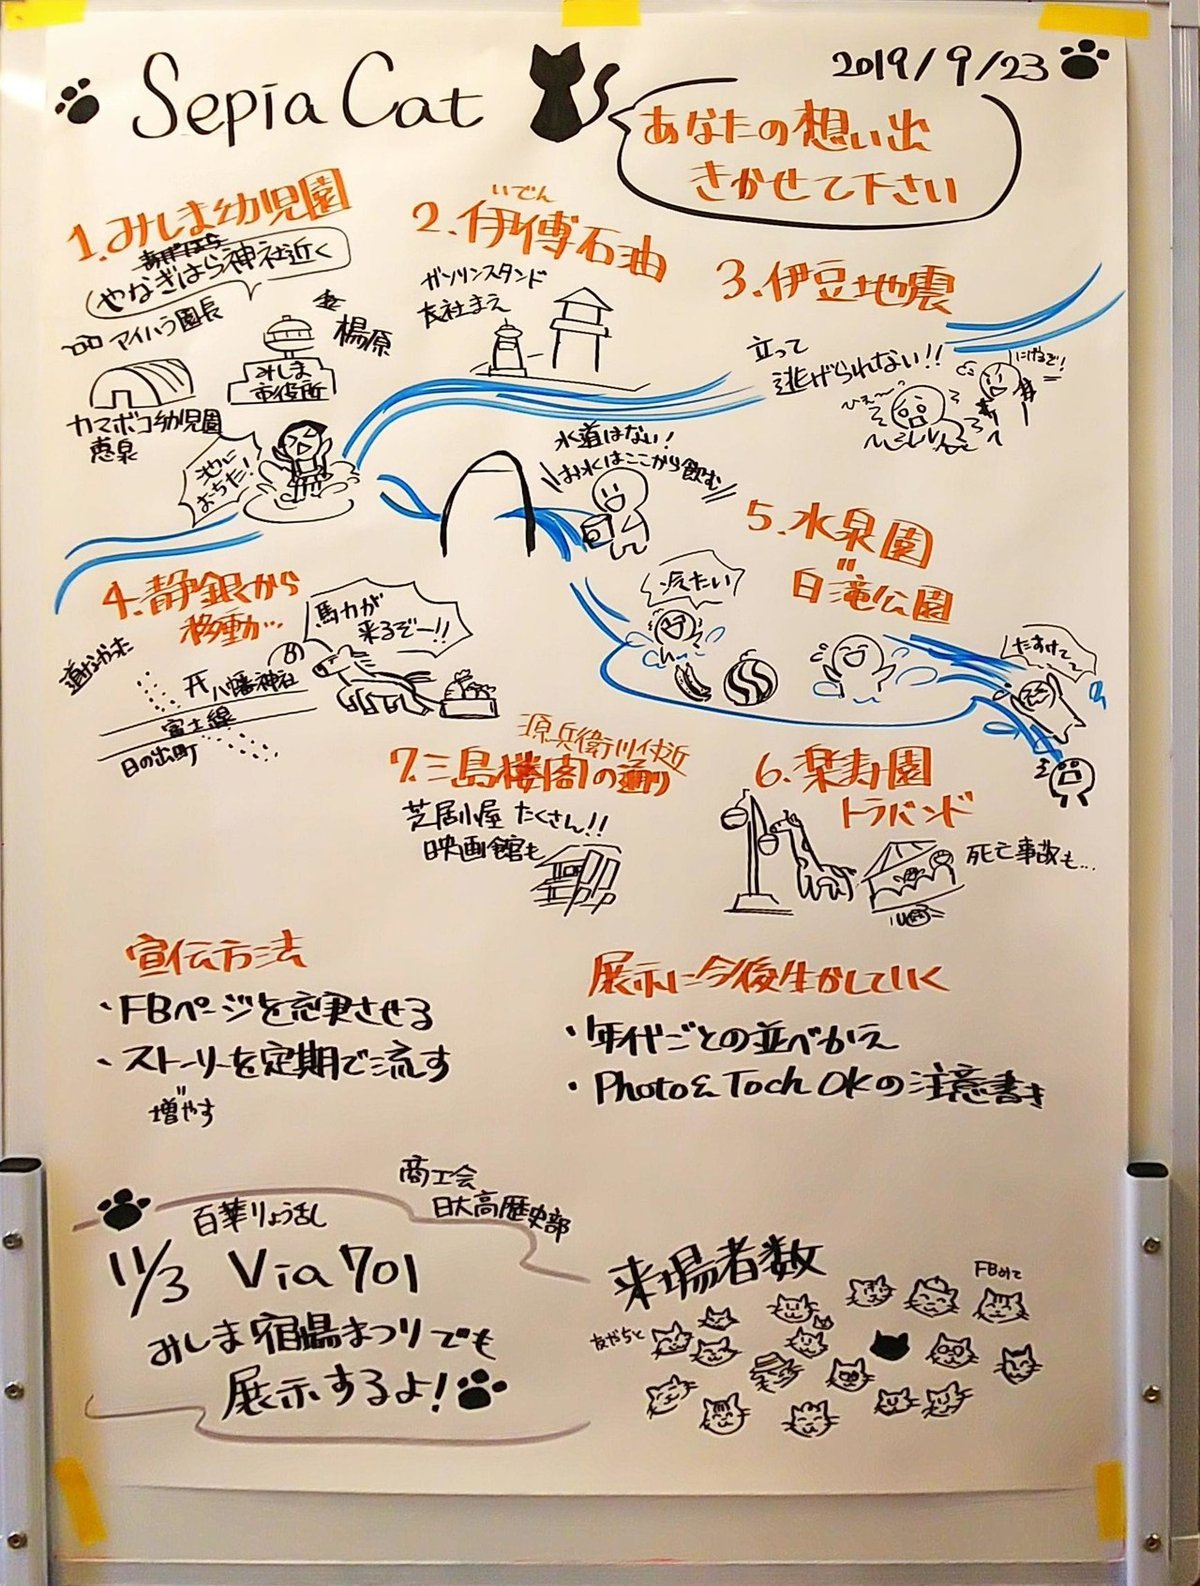 Sepia Cat
2019/9/23
あなたの想い出
きかせて下さい
1.みしま幼児園
やなぎはら神社近く
アイハラ園長
楊原
みしま
市役所
カマボコ幼児園
恵泉
池に
おちた!
いでん
2.伊傳石油
ガソリンスタンド
本社まえ
3.伊豆地震
立って
逃げられない!!
にげるぞ!
ひえ〜
水道はない!
お水はここから飲む
4.静銀から
移動…
道なかった
馬力が
来るぞー!!
八幡神社
富士線
日の出町
5.水泉園
〃
白滝公園
冷たい
たすけて〜
6.楽寿園
トラバンド
死亡事故も…
源兵衛川付近
7.三島楼閣の通り
芝居小屋 たくさん!!
映画館も
宣伝方法
・FBページを充実させる
・ストーリーを定期で流す
増やす
展示に今後生かしていく
・年代ごとの並べかえ
・Photo&Toch OKの注意書き
商工会
日大高歴史部
百華りょう乱し
11/3 Via 701
みしま宿場まつりでも
展示するよ!
来場者数
FBみて